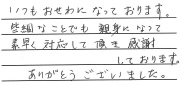 いつもおせわになっております。
些細なことでも親身になって
素早く対応して頂き感謝
しております。
ありがとうございました。